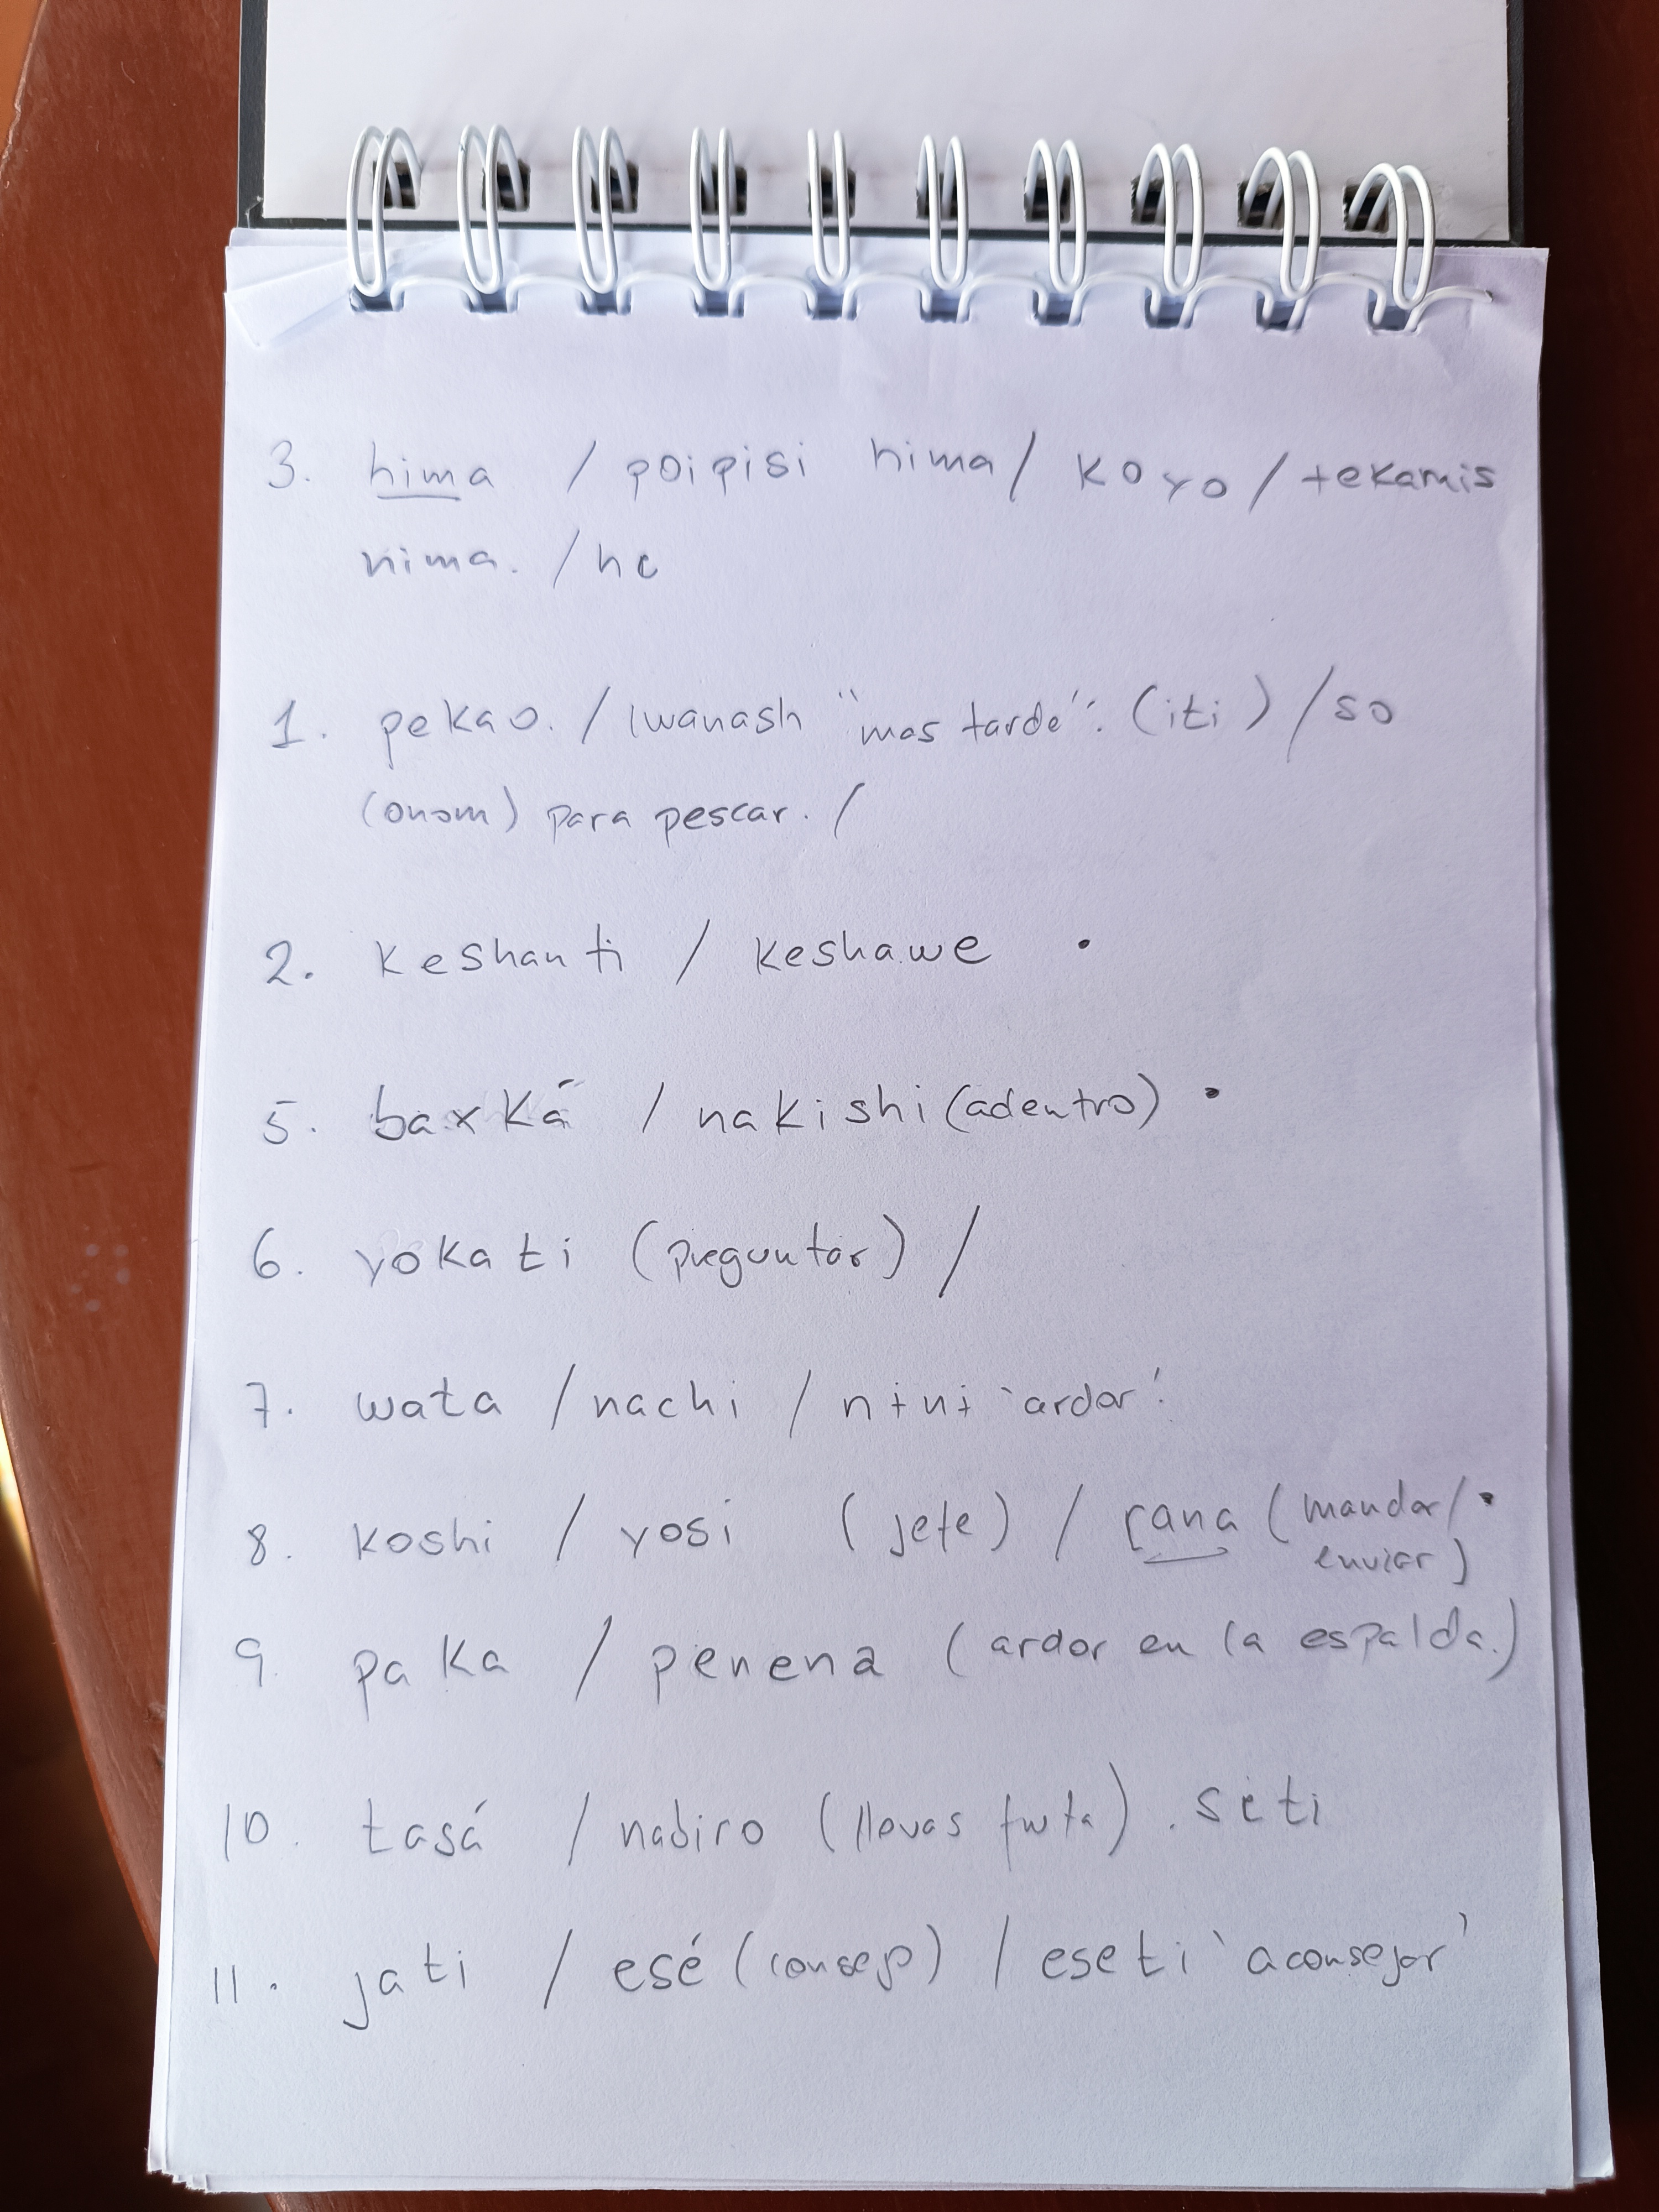 3. hima / poipisi hima / koyo / tekamis
nima. / he
1. pekao. / iwanash "mas tarde". (iti) / so
(onom) para pescar. /
2. keshanti / keshawe .
5. baxká / nakishi (adentro) .
6. yokati (preguntar) /
7. wata / nachi / nɨnɨ 'ardor'.
8. koshi / yosi (jefe) / rana (mandar / .
enviar)
9. paka / penena (ardor en la espalda.)
10. tasá / nabiro (llevas fruta). seti
11. jati / esé (consejo) / eseti 'aconsejar'